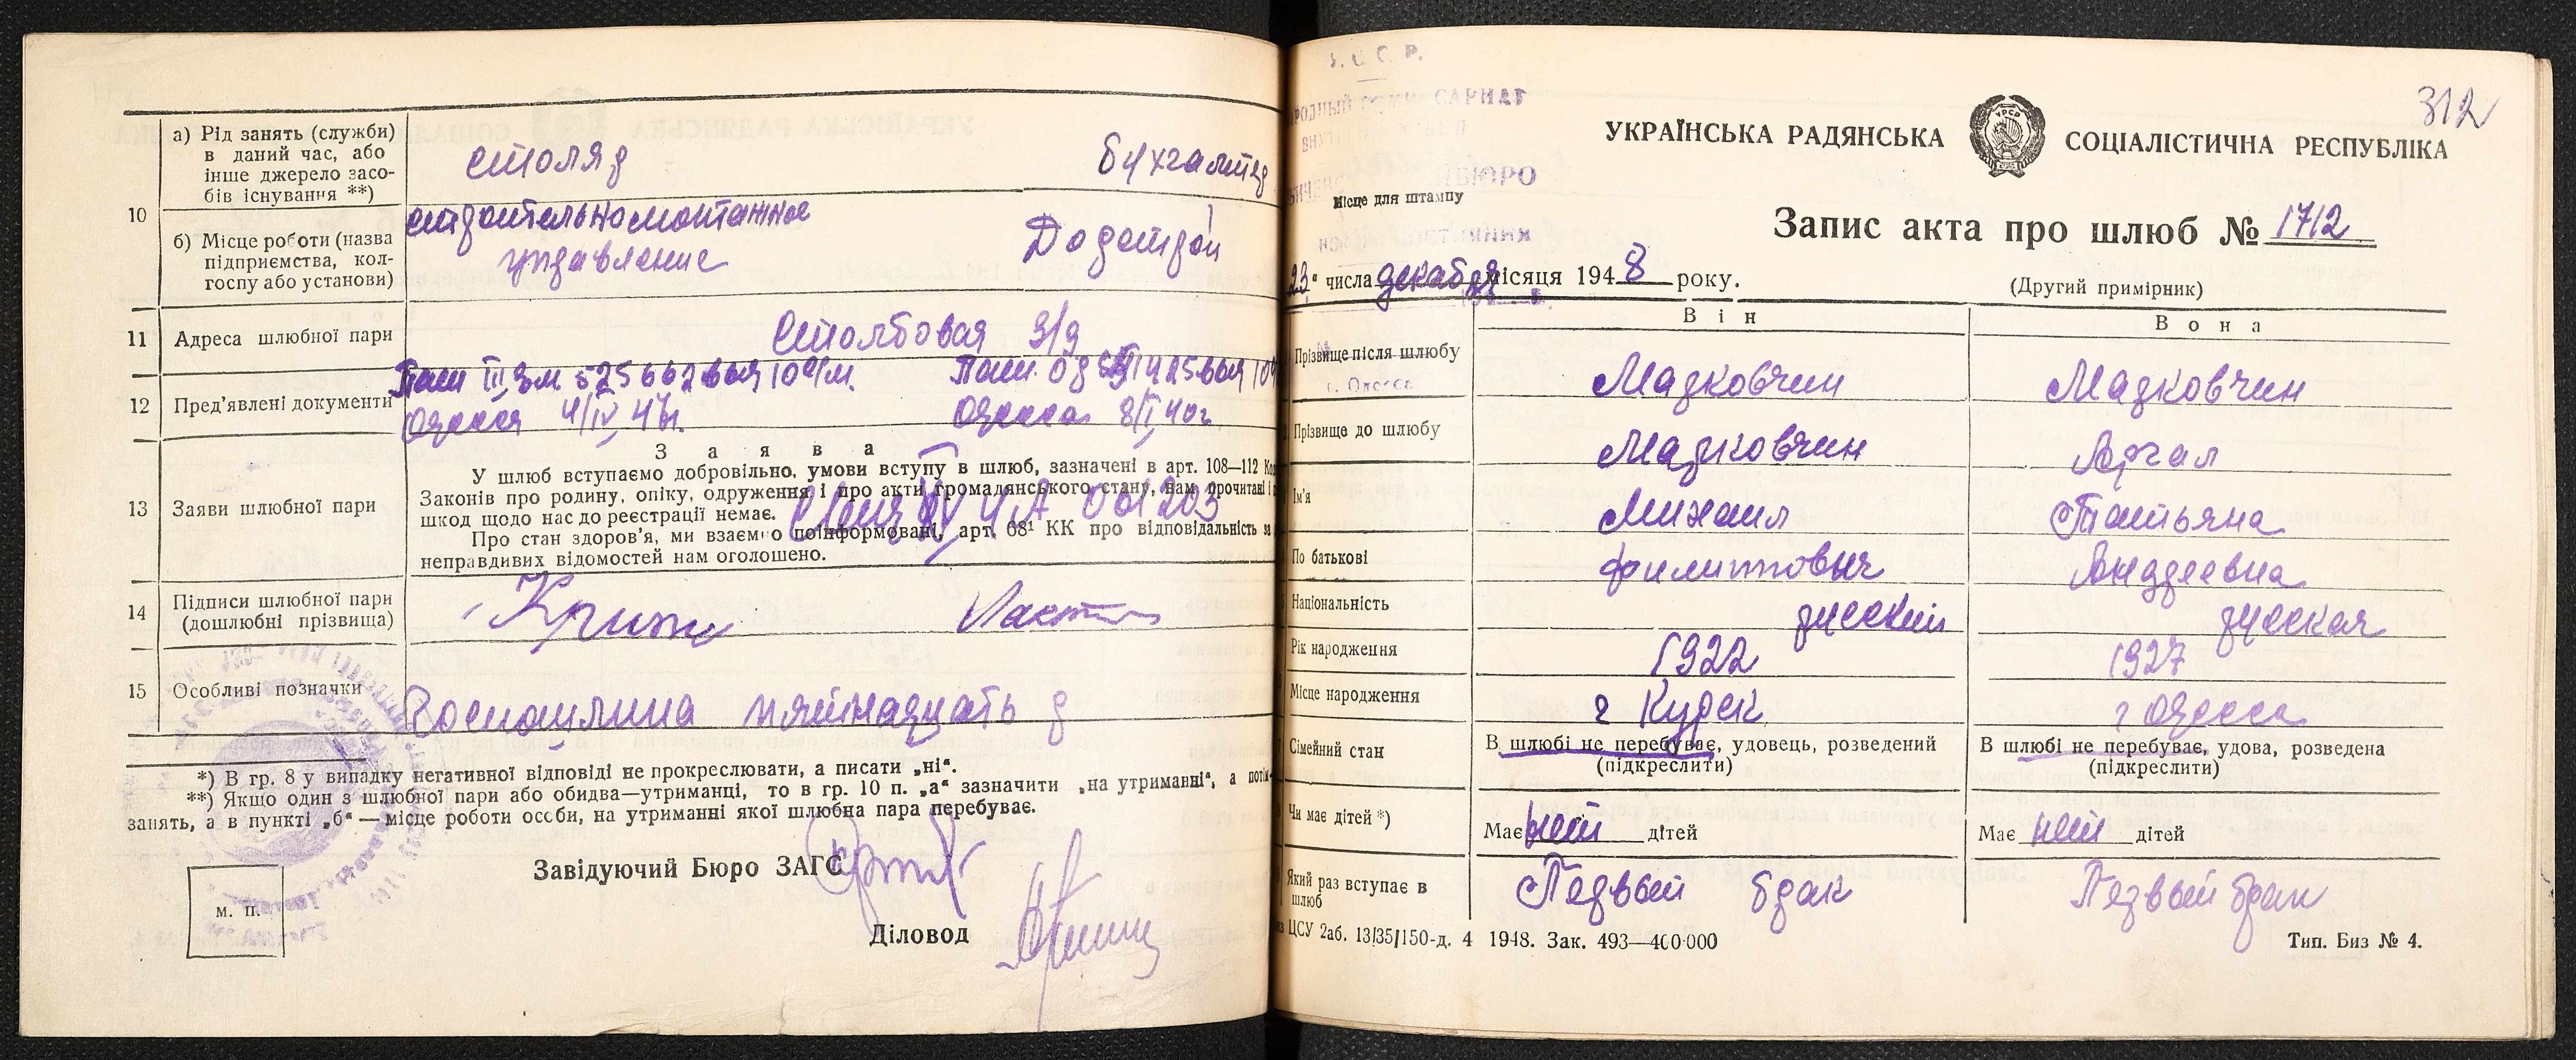 10
а) Рід занять (служби)
в даний час, або
інше джерело засо-
бів існування **)
столяр
бухгалтер
б) Місце роботи (назва
підприємства, кол-
госпу або установи)
строительномонтажное
управление
Додортрой
11 Адреса шлюбної пари
Столбовая 3/9
12 Пред'явлені документи
Одесса 4/IV, 47г.
Одесса 8/I, 40г
13 Заяви шлюбної пари
Заява
У шлюб вступаємо добровільно, умови вступу в шлюб, зазначені в арт. 108—112
Законів про родину, опіку, одруження і про акти громадянського стану, нам прочитані і
шкод щодо нас до реєстрації немає.
Про стан здоров'я, ми взаємно поінформовані, арт. 68¹ КК про відповідальність за
неправдивих відомостей нам оголошено.
ЧА 001203
14 Підписи шлюбної пари
(дошлюбні прізвища)
15 Особливі позначки
Госпошлина пятнадцать р
*) В гр. 8 у випадку негативної відповіді не прокреслювати, а писати „ні“.
**) Якщо один з шлюбної пари або обидва—утриманці, то в гр. 10 п. „а“ зазначити „на утриманні“, а
занять, а в пункті „б“ — місце роботи особи, на утриманні якої шлюбна пара перебуває.
Завідуючий Бюро ЗАГС
Діловод
м. п.
312
УКРАЇНСЬКА РАДЯНСЬКА СОЦІАЛІСТИЧНА РЕСПУБЛІКА
УРСР
БЮРО
Місце для штампу
Запис акта про шлюб № 1712
23“ числа декабря місяця 1948 року.
(Другий примірник)
Він
Вона
Прізвище після шлюбу
Марковчин
Марковчин
г. Одесса
Прізвище до шлюбу
Марковчин
Аргал
Ім'я
Михаил
Татьяна
По батькові
Филиппович
Андреевна
Національність
русский
русская
Рік народження
1922
1927
Місце народження
г Курск
г Одесса
Сімейний стан
В шлюбі не перебуває, удовець, розведений
(підкреслити)
В шлюбі не перебуває, удова, розведена
(підкреслити)
Чи має дітей *)
Має нет дітей
Має нет дітей
Який раз вступає в
шлюб
Первый брак
Первый брак
ЦСУ 2аб. 13/35/150-д. 4 1948. Зак. 493—400·000
Тип. Биз № 4.